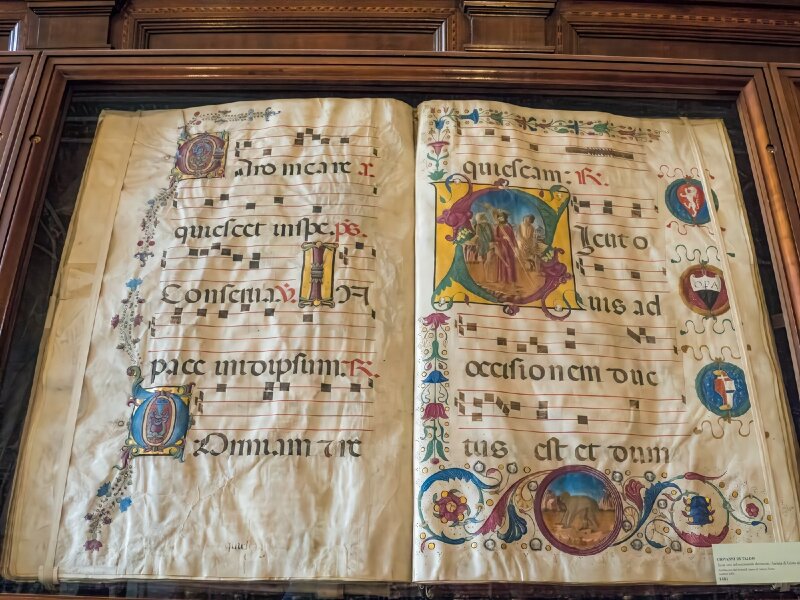 Caro mea re
quiescet in spe. ps.
Conserva. V. IN
pace in idipsum. R.
Dormiam et re
quiescam: R.
Sicut o
uis ad
occisionem duc
tus est et dum
OPA